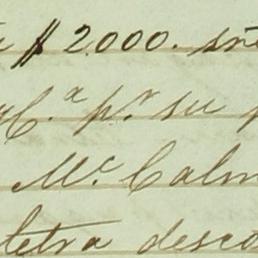 $ 2.000.
C.ª p.r su
M.c Calm
letra desco